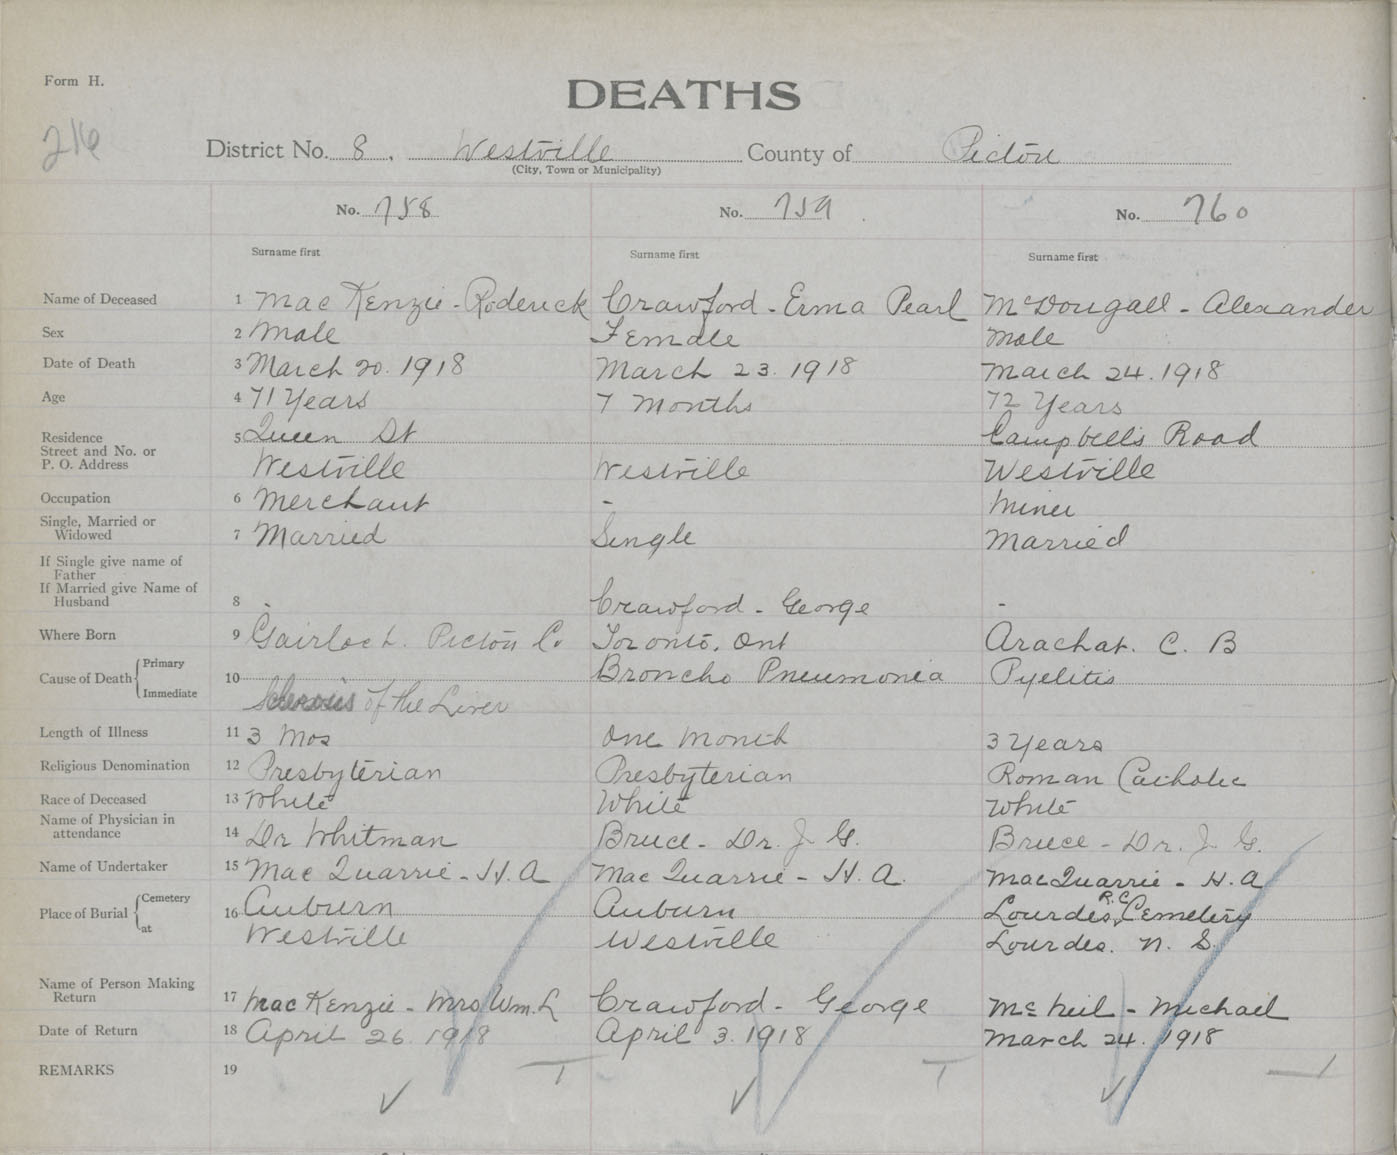 Form H.
DEATHS
216
District No. 8, Westville County of Pictou
(City, Town or Municipality)
No. 758 No. 759 No. 760
Surname first Surname first Surname first
Name of Deceased 1 MacKenzie - Roderick Crawford - Erma Pearl McDougall - Alexander
Sex 2 Male Female Male
Date of Death 3 March 20. 1918 March 23. 1918 March 24. 1918
Age 4 71 Years 7 Months 72 Years
Residence 5 Queen St Campbells Road
Street and No. or
P. O. Address Westville Westville Westville
Occupation 6 Merchant - Miner
Single, Married or
Widowed 7 Married Single Married
If Single give name of
Father
If Married give Name of
Husband 8 - Crawford - George -
Where Born 9 Gairloch. Pictou Co Toronto, Ont Arachat. C. B
Cause of Death Primary 10 Broncho Pneumonia Pyelitis
Immediate of the Liver
Length of Illness 11 3 Mos One Month 3 Years
Religious Denomination 12 Presbyterian Presbyterian Roman Catholic
Race of Deceased 13 White White White
Name of Physician in
attendance 14 Dr Whitman Bruce - Dr. J. G. Bruce - Dr. J. G.
Name of Undertaker 15 MacQuarrie - H. A MacQuarrie - H. A. MacQuarrie - H. A
Place of Burial Cemetery 16 Auburn Auburn Lourdes R.C. Cemetery
at Westville Westville Lourdes. N. S.
Name of Person Making
Return 17 MacKenzie - Mrs Wm. L Crawford - George McNeil - Michael
Date of Return 18 April 26. 1918 April 3. 1918 March 24. 1918
REMARKS 19